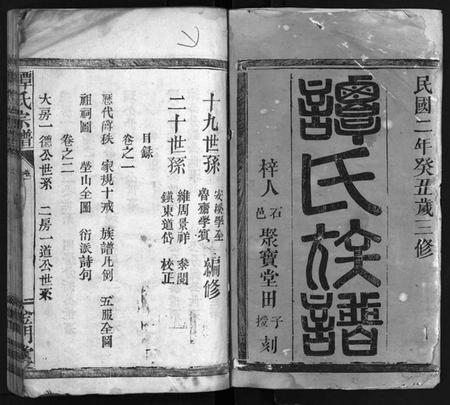 民國二年癸丑歲三修
譚氏族譜
梓人石邑聚寶堂田子授刻
十九世孫
安溪學奎
魯齋學賓
編修
二十世孫
維周景祥 參閱
鎮東道岱 校正
目錄
卷之一
歷代爵秩 家規十戒 族譜凡例 五服全圖
祖祠圖 塋山全圖 衍派詩句
卷之二
大房一德公世系 二房一道公世系
譚氏宗譜